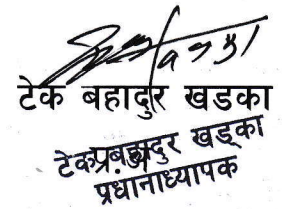 टेक बहादुर खडका
टेक बहादुर खड्का
प्रधानाध्यापक